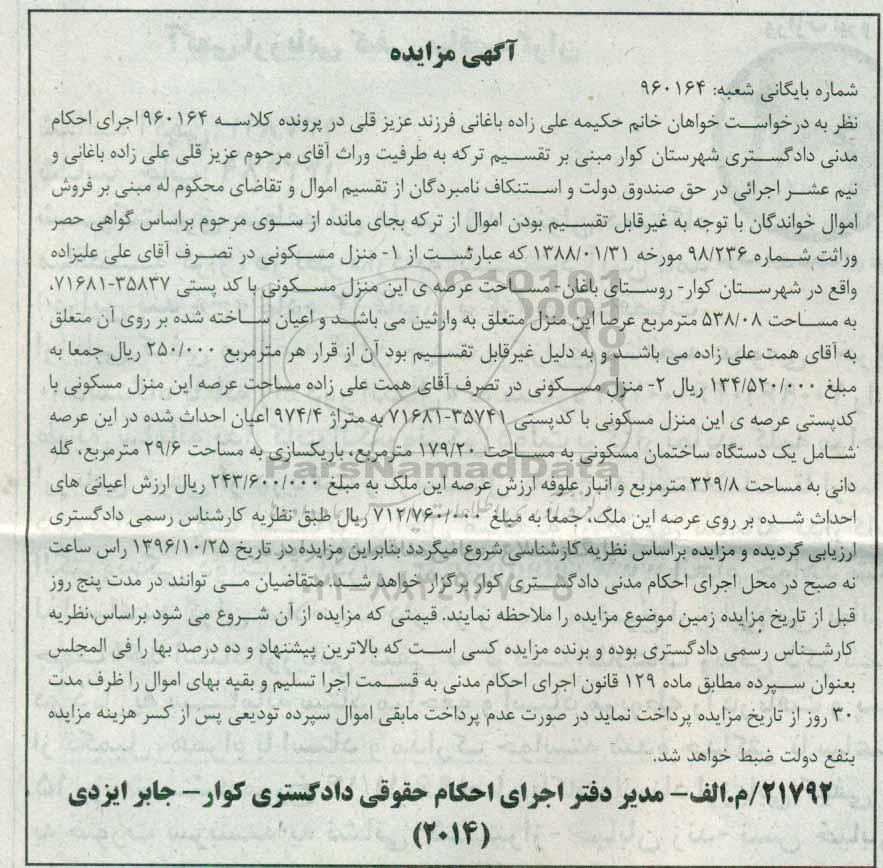 آگهی مزایده
شماره بایگانی شعبه: ۹۶۰۱۶۴
نظر به درخواست خواهان خانم حکیمه علی زاده باغانی فرزند عزیز قلی در پرونده کلاسه ۹۶۰۱۶۴ اجرای احکام
مدنی دادگستری شهرستان کوار مبنی بر تقسیم ترکه به طرفیت وراث آقای مرحوم عزیز قلی علی زاده باغانی و
نیم عشر اجرائی در حق صندوق دولت و استنکاف نامبردگان از تقسیم اموال و تقاضای محکوم له مبنی بر فروش
اموال خواندگان با توجه به غیرقابل تقسیم بودن اموال از ترکه بجای مانده از سوی مرحوم براساس گواهی حصر
وراثت شماره ۹۸/۲۳۶ مورخه ۱۳۸۸/۰۱/۳۱ که عبارتست از ۱- منزل مسکونی در تصرف آقای علی علیزاده
واقع در شهرستان کوار- روستای باغان- مساحت عرصه ی این منزل مسکونی با کد پستی ۳۵۸۳۷-۷۱۶۸۱،
به مساحت ۵۳۸/۰۸ مترمربع عرصا این منزل متعلق به وارثین می باشد و اعیان ساخته شده بر روی آن متعلق
به آقای همت علی زاده می باشد و به دلیل غیرقابل تقسیم بود آن از قرار هر مترمربع ۲۵۰/۰۰۰ ریال جمعا به
مبلغ ۱۳۴/۵۲۰/۰۰۰ ریال ۲- منزل مسکونی در تصرف آقای همت علی زاده مساحت عرصه این منزل مسکونی با
کدپستی عرصه ی این منزل مسکونی با کدپستی ۳۵۷۴۱-۷۱۶۸۱ به متراژ ۹۷۴/۴ اعیان احداث شده در این عرصه
شامل یک دستگاه ساختمان مسکونی به مساحت ۱۷۹/۲۰ مترمربع، باریکسازی به مساحت ۲۹/۶ مترمربع، گله
دانی به مساحت ۳۲۹/۸ مترمربع و انبار علوفه ارزش عرصه این ملک به مبلغ ۲۴۳/۶۰۰/۰۰۰ ریال ارزش اعیانی های
احداث شده بر روی عرصه این ملک، جمعا به مبلغ ۷۱۲/۷۶۰/۰۰۰ ریال طبق نظریه کارشناس رسمی دادگستری
ارزیابی گردیده و مزایده براساس نظریه کارشناسی شروع میگردد بنابراین مزایده در تاریخ ۱۳۹۶/۱۰/۲۵ راس ساعت
نه صبح در محل اجرای احکام مدنی دادگستری کوار برگزار خواهد شد. متقاضیان می توانند در مدت پنج روز
قبل از تاریخ مزایده زمین موضوع مزایده را ملاحظه نمایند. قیمتی که مزایده از آن شروع می شود براساس نظریه
کارشناس رسمی دادگستری بوده و برنده مزایده کسی است که بالاترین پیشنهاد و ده درصد بها را فی المجلس
بعنوان سپرده مطابق ماده ۱۲۹ قانون اجرای احکام مدنی به قسمت اجرا تسلیم و بقیه بهای اموال را ظرف مدت
۳۰ روز از تاریخ مزایده پرداخت نماید در صورت عدم پرداخت مابقی اموال سپرده تودیعی پس از کسر هزینه مزایده
بنفع دولت ضبط خواهد شد.
۲۱۷۹۲/م.الف- مدیر دفتر اجرای احکام حقوقی دادگستری کوار- جابر ایزدی
(۲۰۱۴)
ParsNamadData